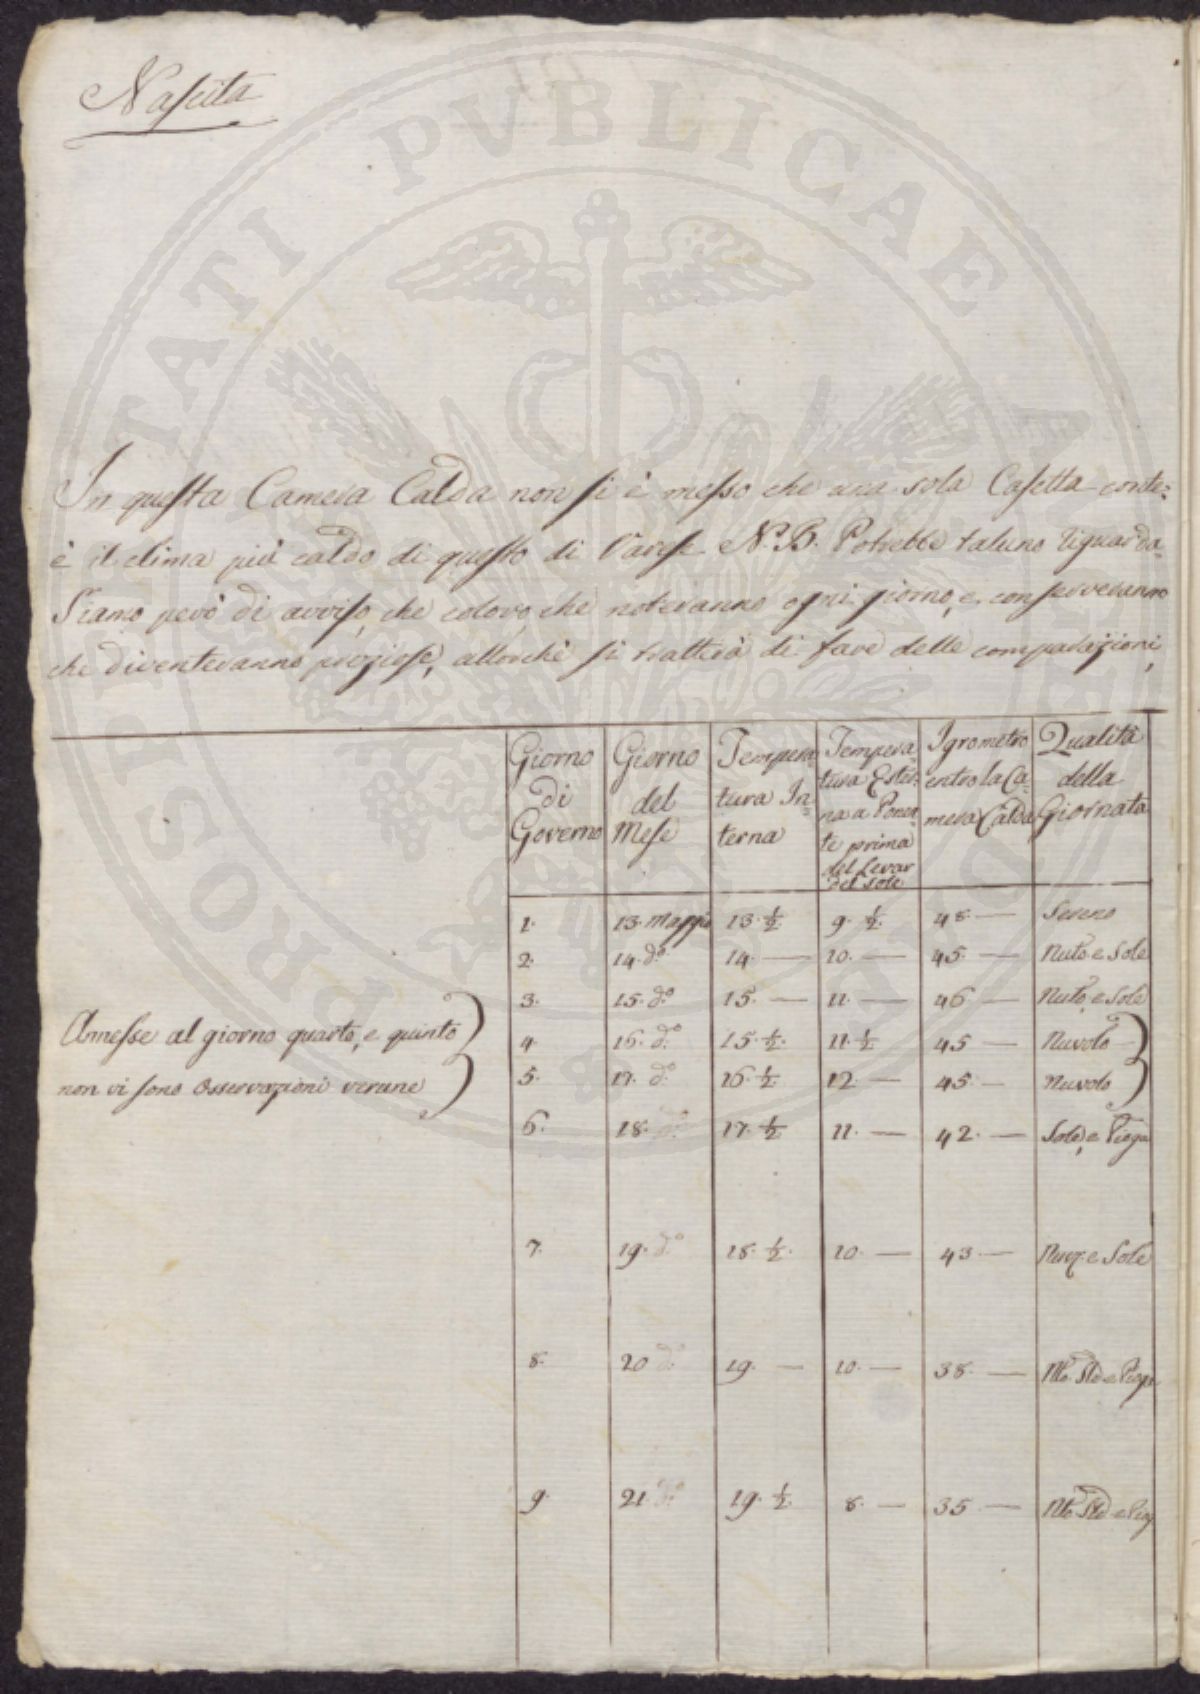 Nascita
In questa Camera Calda non si è messo che una sola Casetta conte=
è il clima più caldo di questo di Varese. N.B. Potrebbe taluno riguarda=
Siamo però di avviso, che coloro, che noteranno ogni giorno, e conserveranno
che diventeranno preziose, allorchè si tratterà di fare delle comparazioni,
Giorno di Governo | Giorno del Mese | Tempera tura In= terna | Tempera= tura Ester= na a Ponen= te prima del Levar del Sole | Igrometro entro la Ca= mera Calda | Qualità della Giornata
1. | 13. Maggio | 13. ½ | 9. ½ | 48. — | Sereno
2. | 14. d.° | 14. — | 10. — | 45. — | Nuv.° e Sole
3. | 15. d.° | 15. — | 11. — | 46 — | Nuv.° e Sole
Annesse al giorno quarto, e quinto
non vi sono osservazioni verune
4. | 16. d.° | 15. ½. | 11. ½ | 45 — | Nuvolo
5. | 17. d.° | 16. ½. | 12 — | 45. — | Nuvolo
6. | 18. d.° | 17. ½ | 11. — | 42. — | Sole, e Piogia
7. | 19. d.° | 18. ½. | 10. — | 43 — | Nuv. e Sole
8. | 20 d.° | 19. — | 10. — | 38. — | Nlo. Sle e Piog.
9. | 21. d.° | 19. ½. | 8. — | 35 — | Nlo Sle e Piog